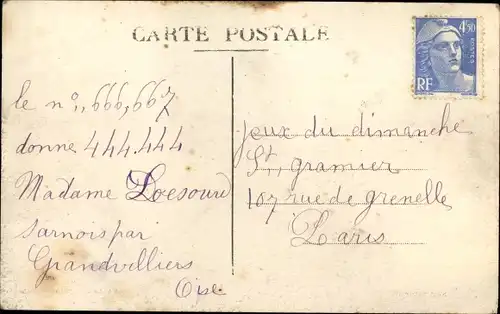 CARTE POSTALE
4f50
POSTES
RF
le no,, 666,667
donne 444.444
Madame Loesourd
Sarnois par
Grandvilliers
Oise
Jeux du dimanche
St, gramier
107 rue de grenelle
Paris